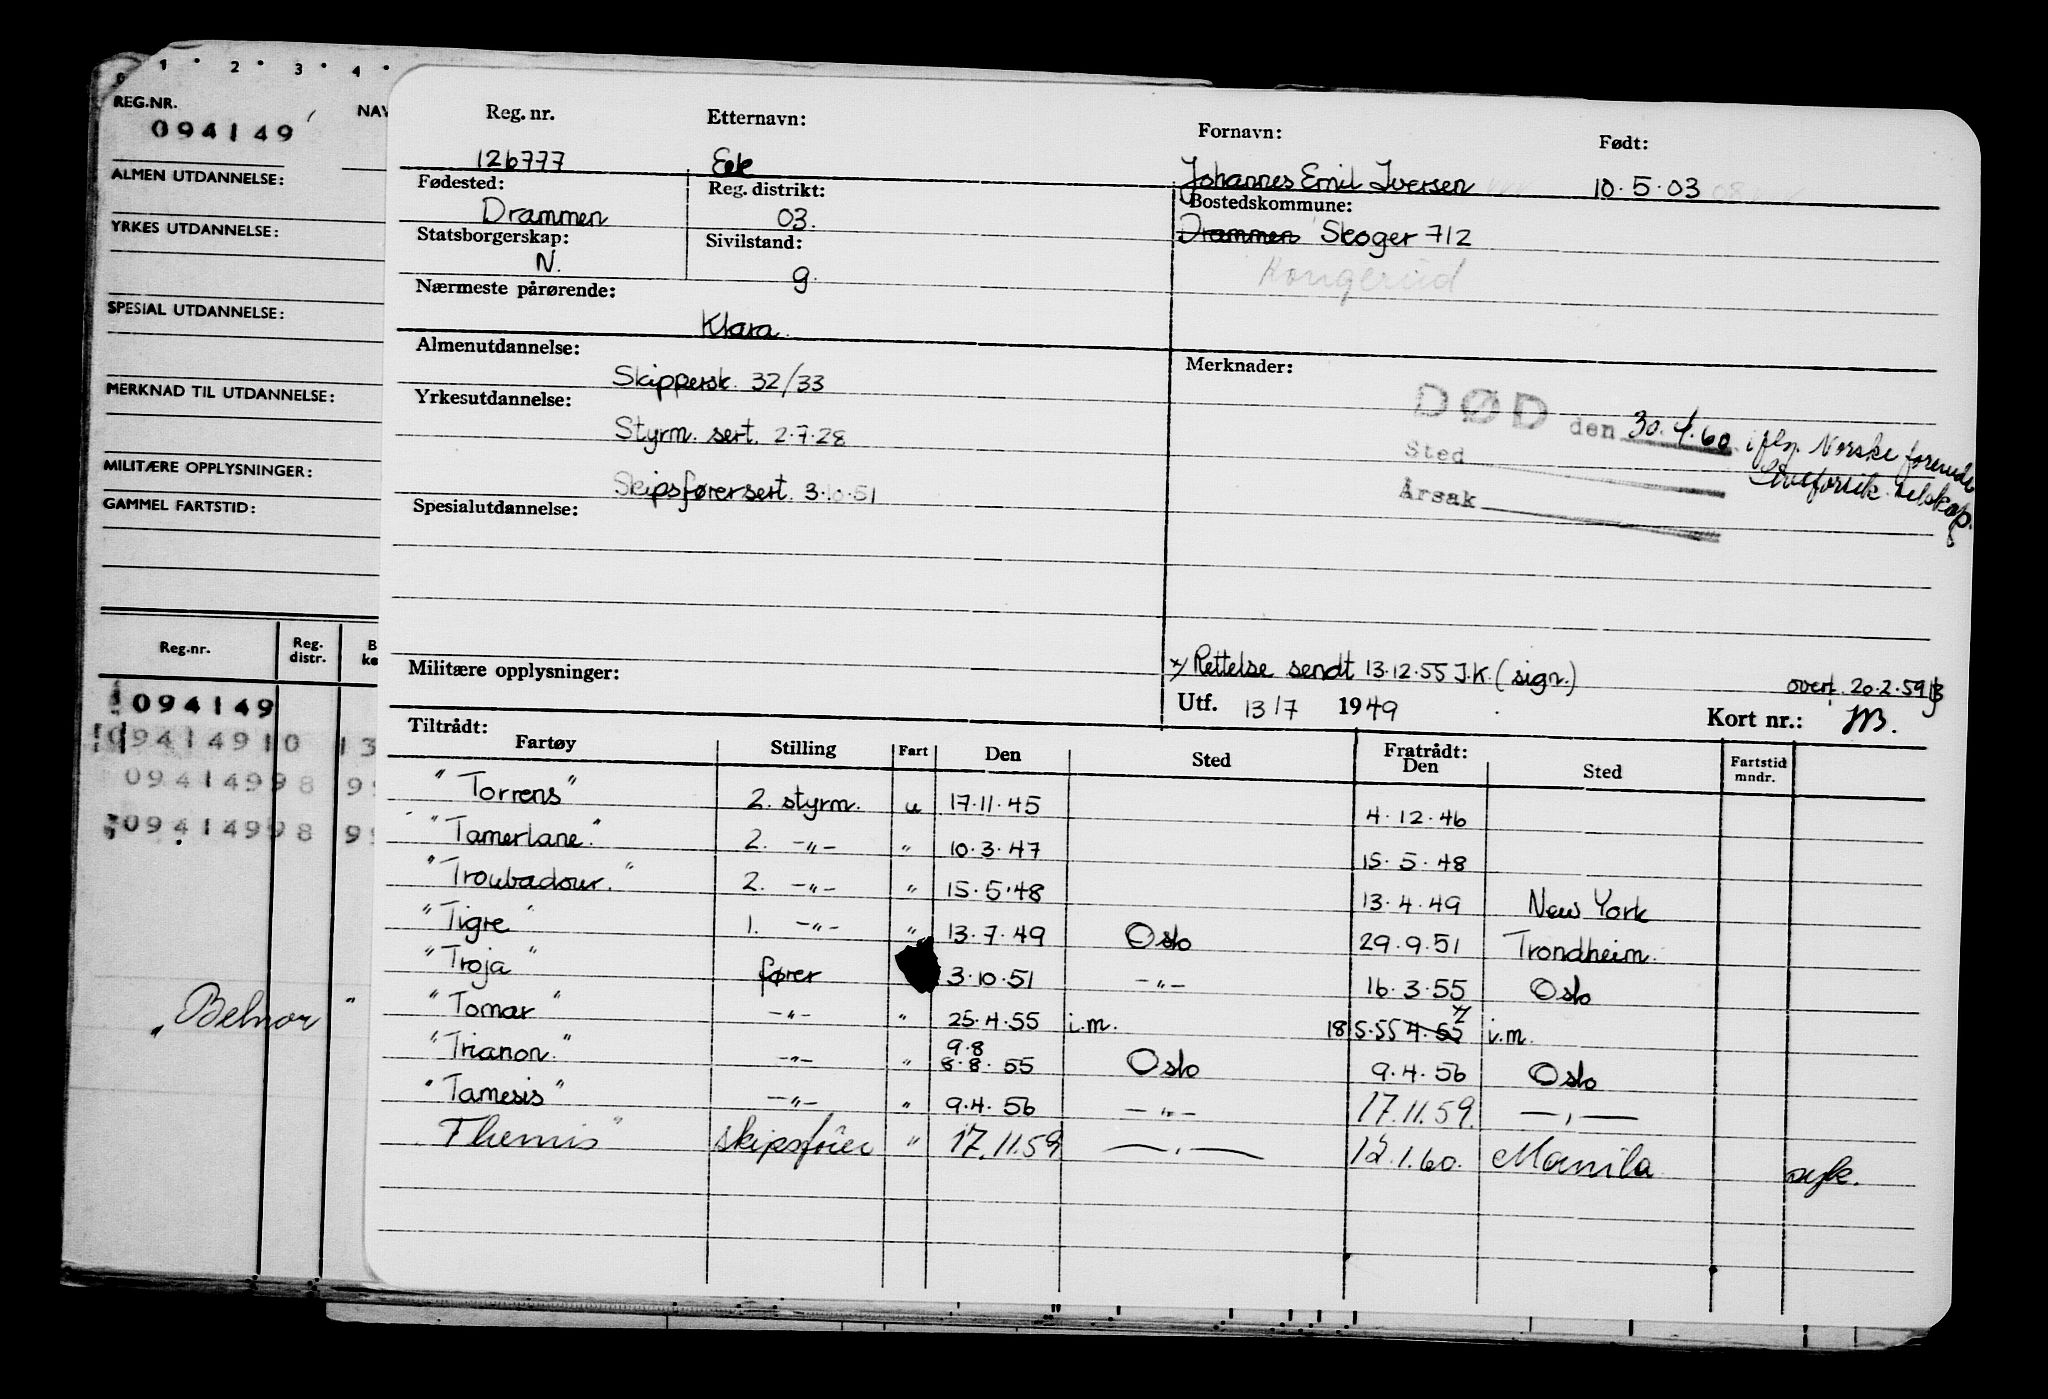 0 1 • 2 • 3 • 4 •
REG.NR.
094149
NAV
ALMEN UTDANNELSE:
YRKES UTDANNELSE:
SPESIAL UTDANNELSE:
MERKNAD TIL UTDANNELSE:
MILITÆRE OPPLYSNINGER:
GAMMEL FARTSTID:
Reg.nr. Reg. distr. B
094149
09414910 13
09414998 99
09414998 99
"Belnor"
Reg. nr. Etternavn: Fornavn: Født:
126777 Eek Johannes Emil Iversen 10.5.03
Fødested: Reg. distrikt: Bostedskommune:
Drammen 03. Drammen Skoger 712
Statsborgerskap: Sivilstand:
N. g. Kongerud
Nærmeste pårørende:
Klara.
Almenutdannelse: Merknader:
Skippersk. 32/33
DØD den 30.4.60 iflg. Norske forende
Livsforsik. selskap.
Sted
Årsak
Yrkesutdannelse:
Styrm. sert. 2.7.28
Skipsførersert. 3.10.51
Spesialutdannelse:
x/ Rettelse sendt 13.12.55 J.K. (sign.)
overf. 20.2.59
Militære opplysninger: Utf. 13/7 1949 Kort nr.:
Tiltrådt: Fratrådt:
Fartøy Stilling Fart Den Sted Den Sted Fartstid mndr.
"Torrens" 2. styrm. u 17.11.45 4.12.46
"Tamerlane." 2. -"- " 10.3.47 15.5.48
"Troubadour." 2. -"- " 15.5.48 13.4.49 New York
"Tigre" 1. -"- " 13.7.49 Oslo 29.9.51 Trondheim.
"Troja" fører 3.10.51 -"- 16.3.55 Oslo
"Tomar" -"- " 25.4.55 i.m. 18.5.55 4.55 x/ i.m.
9.8
"Trianon." -"- " 8.8.55 Oslo 9.4.56 Oslo
"Tamesis" -"- " 9.4.56 -"- 17.11.59. -"-
"Themis" skipsfører " 17.11.59 -"- 12.1.60. Manila syk.